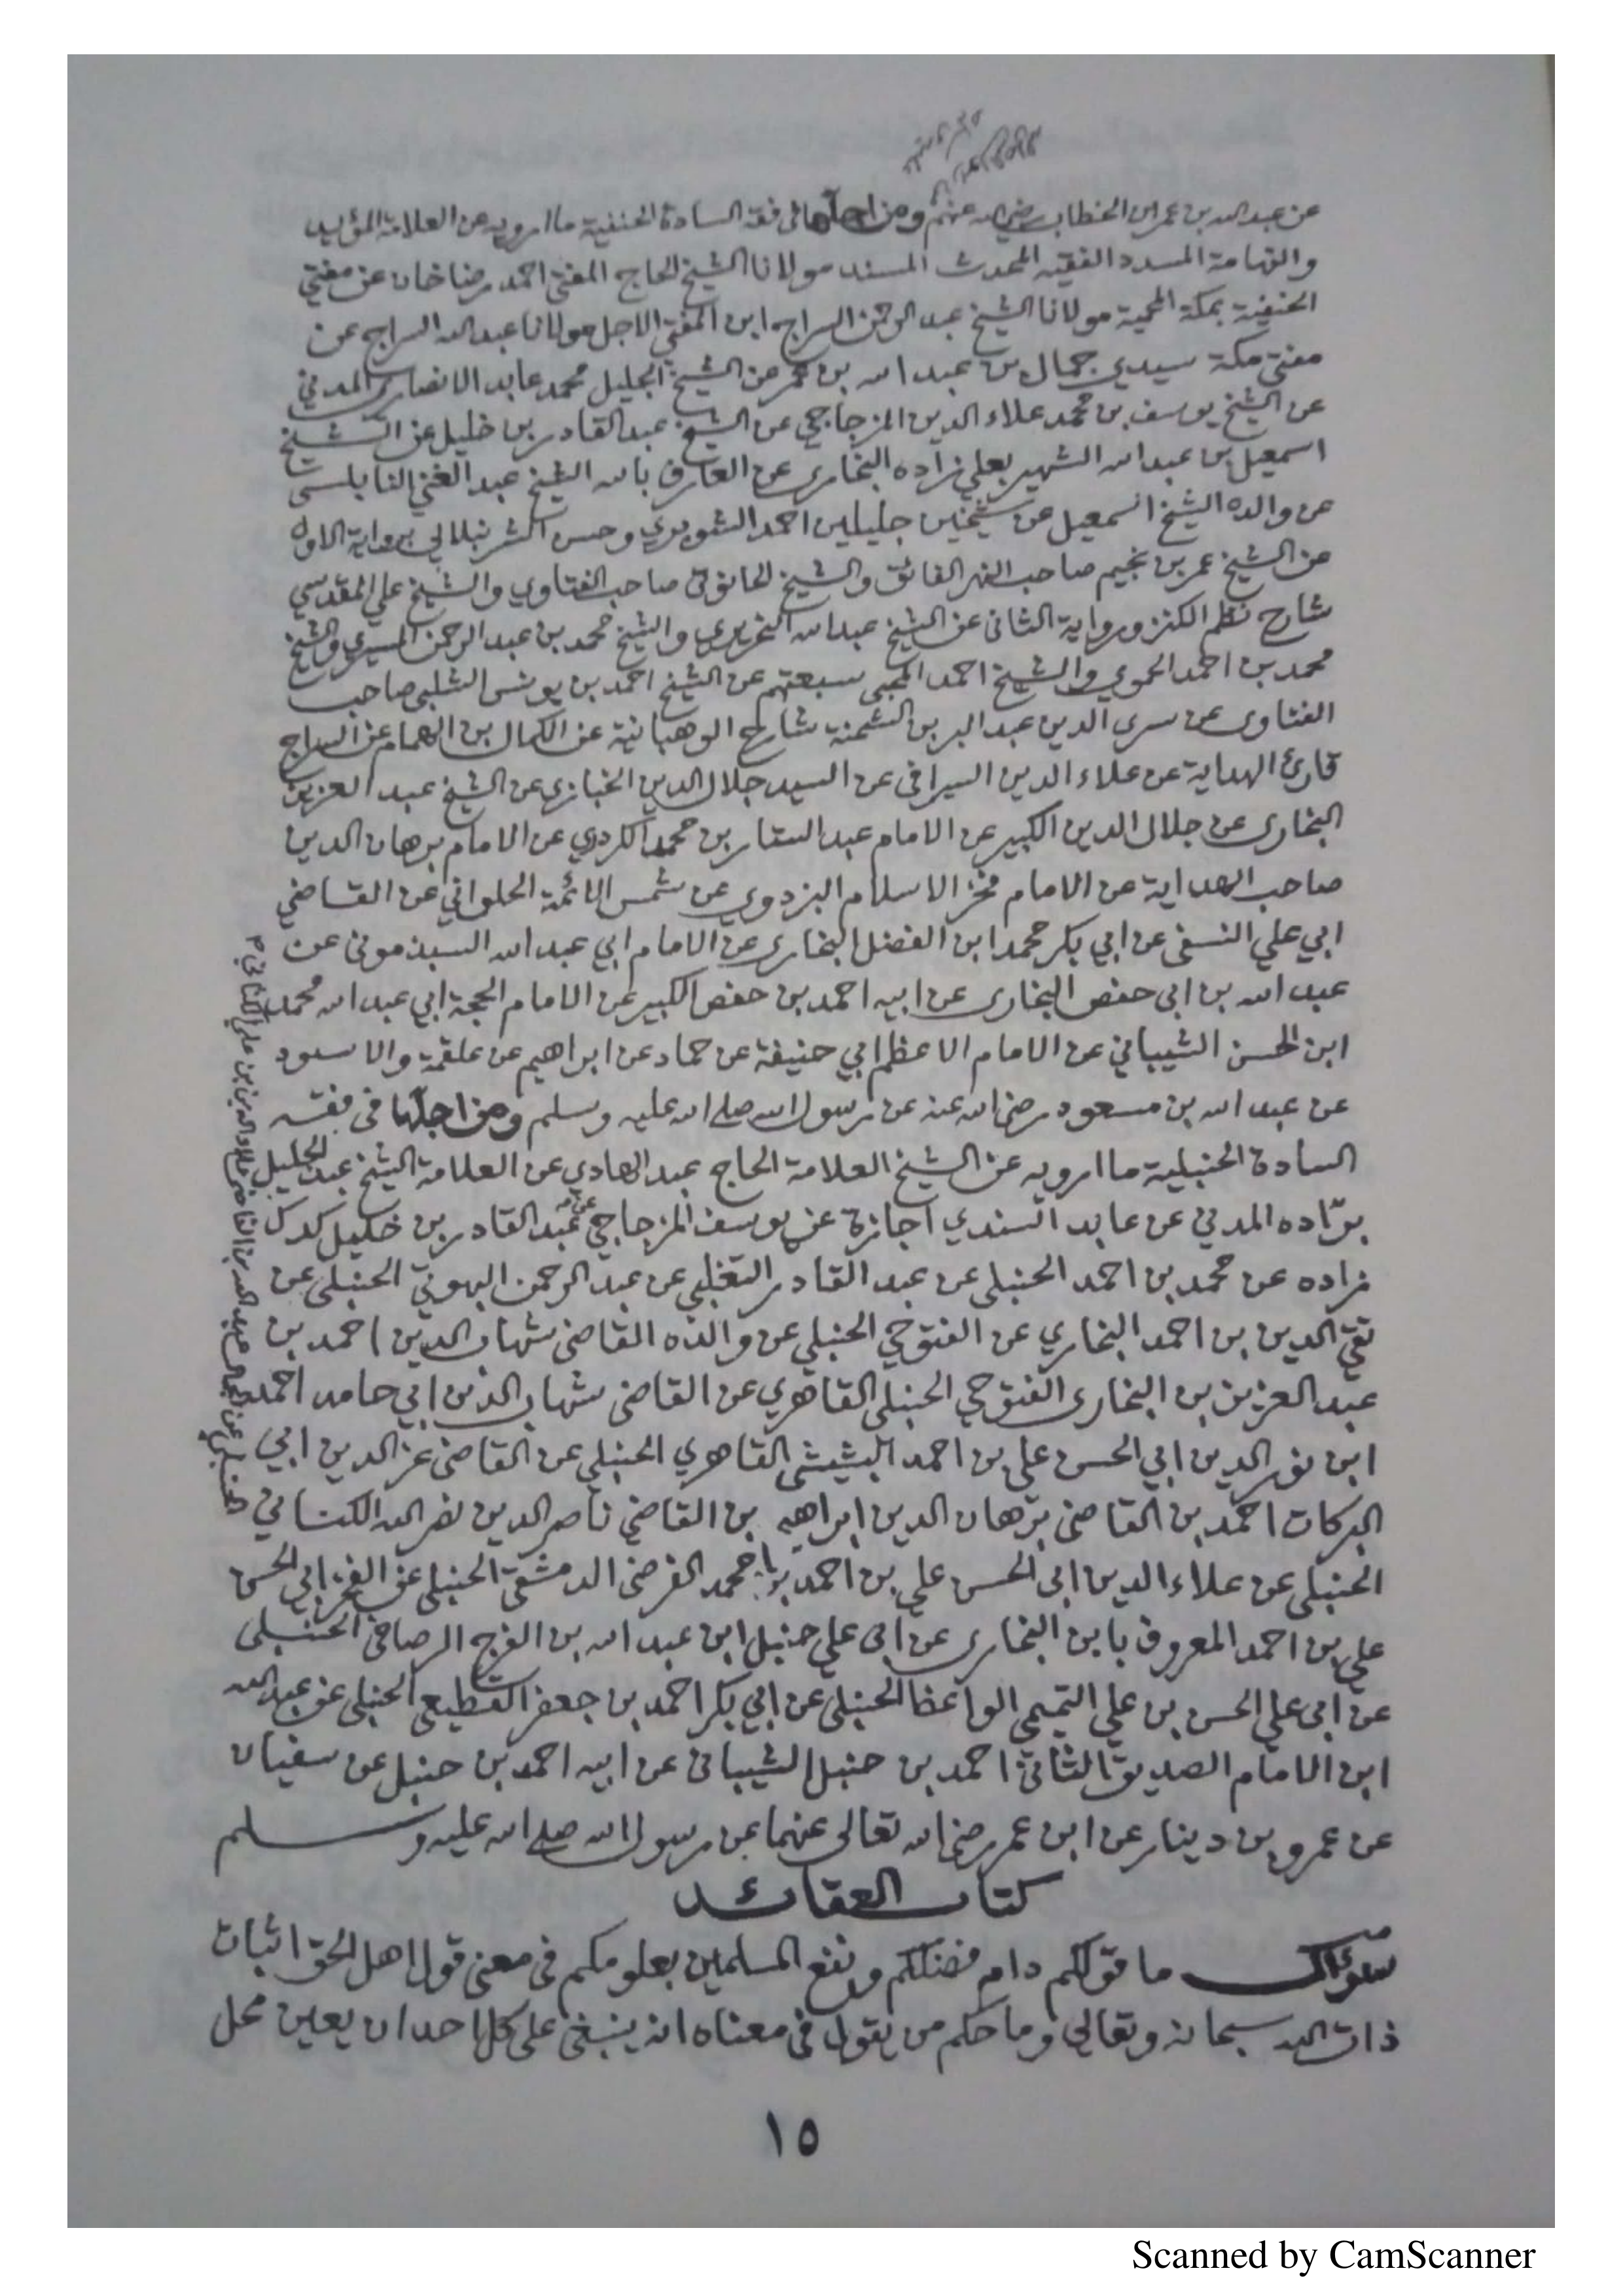 عن عبد الله بن عمر ابن الخطاب رضي الله عنهم ومن اجلها في فقه السادة الحنفية ما ارويه عن العلامة المؤيد
والفهامة المسدد الفقيه المحدث المسند مولانا الشيخ الحاج المفتي احمد رضا خان عن مفتي
الحنفية بمكة المحمية مولانا الشيخ عبد الرحمن السراج ابن المفتي الاجل مولانا عبد الله السراج عن
مفتي مكة سيدي جمال بن عبد الله بن عمر عن الشيخ الجليل محمد عابد الانصاري المدني
عن الشيخ يوسف بن محمد علاء الدين المزجاجي عن الشيخ عبد القادر بن خليل عن الشيخ
اسمعيل بن عبد الله الشهير بعلي زاده البخاري عن العارف بالله الشيخ عبد الغني النابلسي
عن والده الشيخ اسمعيل عن شيخين جليلين احمد الشوبري وحسن الشرنبلالي برواية الاول
عن الشيخ عمر بن نجيم صاحب النهر الفائق والشيخ الحانوتي صاحب الفتاوي والشيخ علي المقدسي
شارح نظم الكنز ورواية الثاني عن الشيخ عبد الله النحريري والشيخ محمد بن عبد الرحمن المسيري والشيخ
محمد بن احمد الحموي والشيخ احمد المحبي سبعتهم عن الشيخ احمد بن يونس الشلبي صاحب
الفتاوى عن سري الدين عبد البر بن الشحنة شارح الوهبانية عن الكمال بن الهمام عن السراج
قارئ الهداية عن علاء الدين السيرافي عن السيد جلال الدين الخبازي عن الشيخ عبد العزيز
البخاري عن جلال الدين الكبير عن الامام عبد الستار بن محمد الكردري عن الامام برهان الدين
صاحب الهداية عن الامام فخر الاسلام البزدوي عن شمس الائمة الحلواني عن القاضي
ابي علي النسفي عن ابي بكر محمد ابن الفضل البخاري عن الامام ابي عبد الله السبذموني عن
عبد الله بن ابي حفص البخاري عن ابيه احمد بن حفص الكبير عن الامام الحجة ابي عبد الله محمد
ابن الحسن الشيباني عن الامام الاعظم ابي حنيفة عن حماد عن ابراهيم عن علقمة والاسود
عن عبد الله بن مسعود رضي الله عنه عن رسول الله صلى الله عليه وسلم ومن اجلها في فقه
السادة الحنبلية ما ارويه عن الشيخ العلامة الحاج عبد الهادي عن العلامة الشيخ عبد الجليل
برّاده المدني عن عابد السندي اجازة عن يوسف المزجاجي عن عبد القادر بن خليل كدك
زاده عن محمد بن احمد الحنبلي عن عبد القادر التغلبي عن عبد الرحمن البهوتي الحنبلي عن
تقي الدين بن احمد البخاري عن الفتوحي الحنبلي عن والده القاضي شهاب الدين احمد بن
عبد العزيز بن البخاري الفتوحي الحنبلي القاهري عن القاضي شهاب الدين ابي حامد احمد
ابن نور الدين ابي الحسن علي بن احمد البشيشي القاهري الحنبلي عن القاضي عز الدين ابي
البركات احمد بن القاضي برهان الدين ابراهيم بن القاضي ناصر الدين نصر الله الكناني
الحنبلي عن علاء الدين ابي الحسن علي بن احمد محمد الفرضي الدمشقي الحنبلي عن الفخر ابي الحسن
علي بن احمد المعروف بابن البخاري عن ابي علي حنبل ابن عبد الله بن الفرج الرصافي الحنبلي
عن ابي علي الحسن بن علي التميمي الواعظ الحنبلي عن ابي بكر احمد بن جعفر القطيعي الحنبلي عن عبد الله
ابن الامام الصديق الثاني احمد بن حنبل الشيباني عن ابيه احمد بن حنبل عن سفيان
عن عمرو بن دينار عن ابن عمر رضي الله تعالى عنهما عن رسول الله صلى الله عليه وسلم
كتاب العقائد
سؤال ما قولكم دام فضلكم ونفع المسلمين بعلومكم في معنى قول اهل الحق اثبات
ذات الله سبحانه وتعالى وما حكم من يقول في معناه انه ينبغي على كل احد ان يعين محل
١٥
Scanned by CamScanner